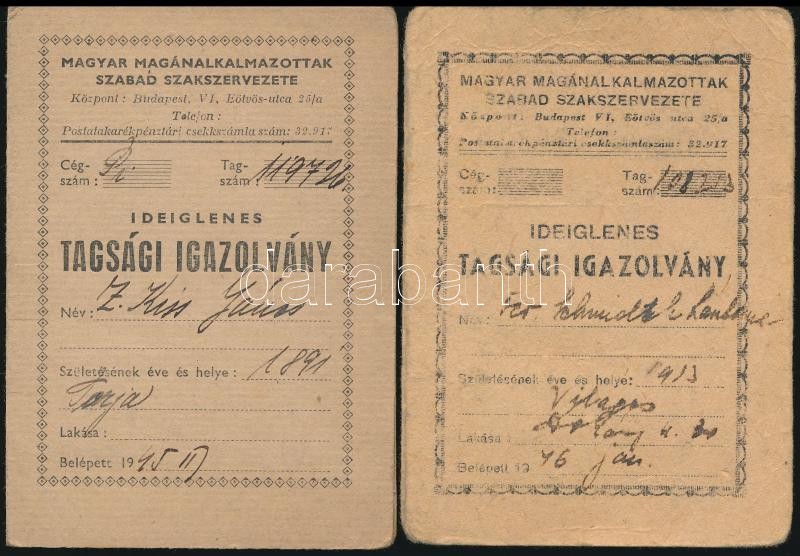 MAGYAR MAGÁNALKALMAZOTTAK
SZABAD SZAKSZERVEZETE
Központ: Budapest, VI, Eötvös-utca 25/a
Telefon:
Postatakarékpénztári csekkszámla szám: 32.917
Cég-
szám:
Tag-
szám: 119726
IDEIGLENES
TAGSÁGI IGAZOLVÁNY
Név: Z. Kiss
Születésének éve és helye: 1891
Tarja
Lakása:
Belépett 1945 IV
MAGYAR MAGÁNALKALMAZOTTAK
SZABAD SZAKSZERVEZETE
Központ: Budapest VI, Eötvös utca 25/a
Telefon:
Postatakarékpénztári csekkszámlaszám: 32.917
Cég-
szám:
Tag-
szám 108213
IDEIGLENES
TAGSÁGI IGAZOLVÁNY
Név: Schmidt
Születésének éve és helye: 1913
Világos
Lakása:
Belépett 1946 jan.
darabanth